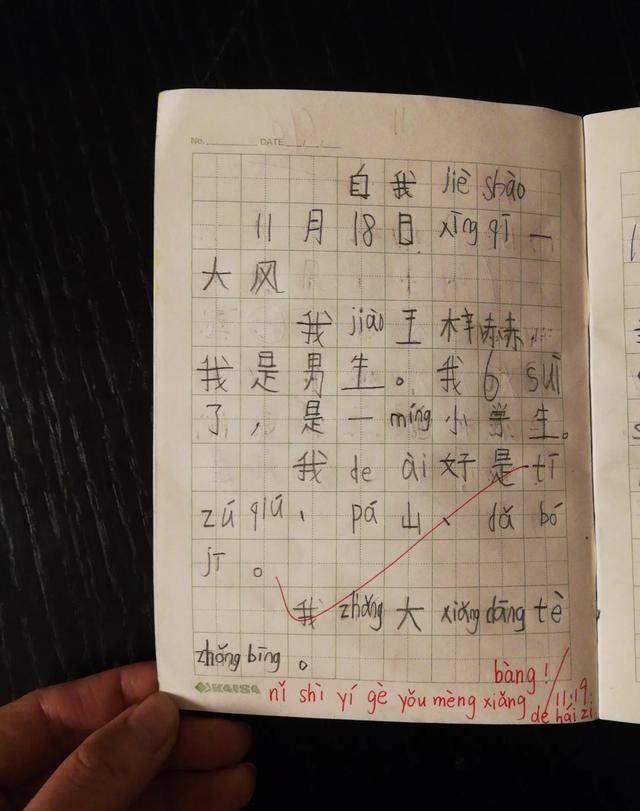 No. DATE
自我 jiè shào
11月18日 xīng qī 一
大风
我 jiào 王梓赫，
我是男生。我6 suì
了，是一 míng 小学生。
我 de ài 好是 tī
zú qiú、pá 山、dǎ bó
jī。
我 zhǎng 大 xiǎng dāng tè
zhǒng bīng。
KAISA
bàng!
nǐ shì yí gè yǒu mèng xiǎng de hái zi
11.19.